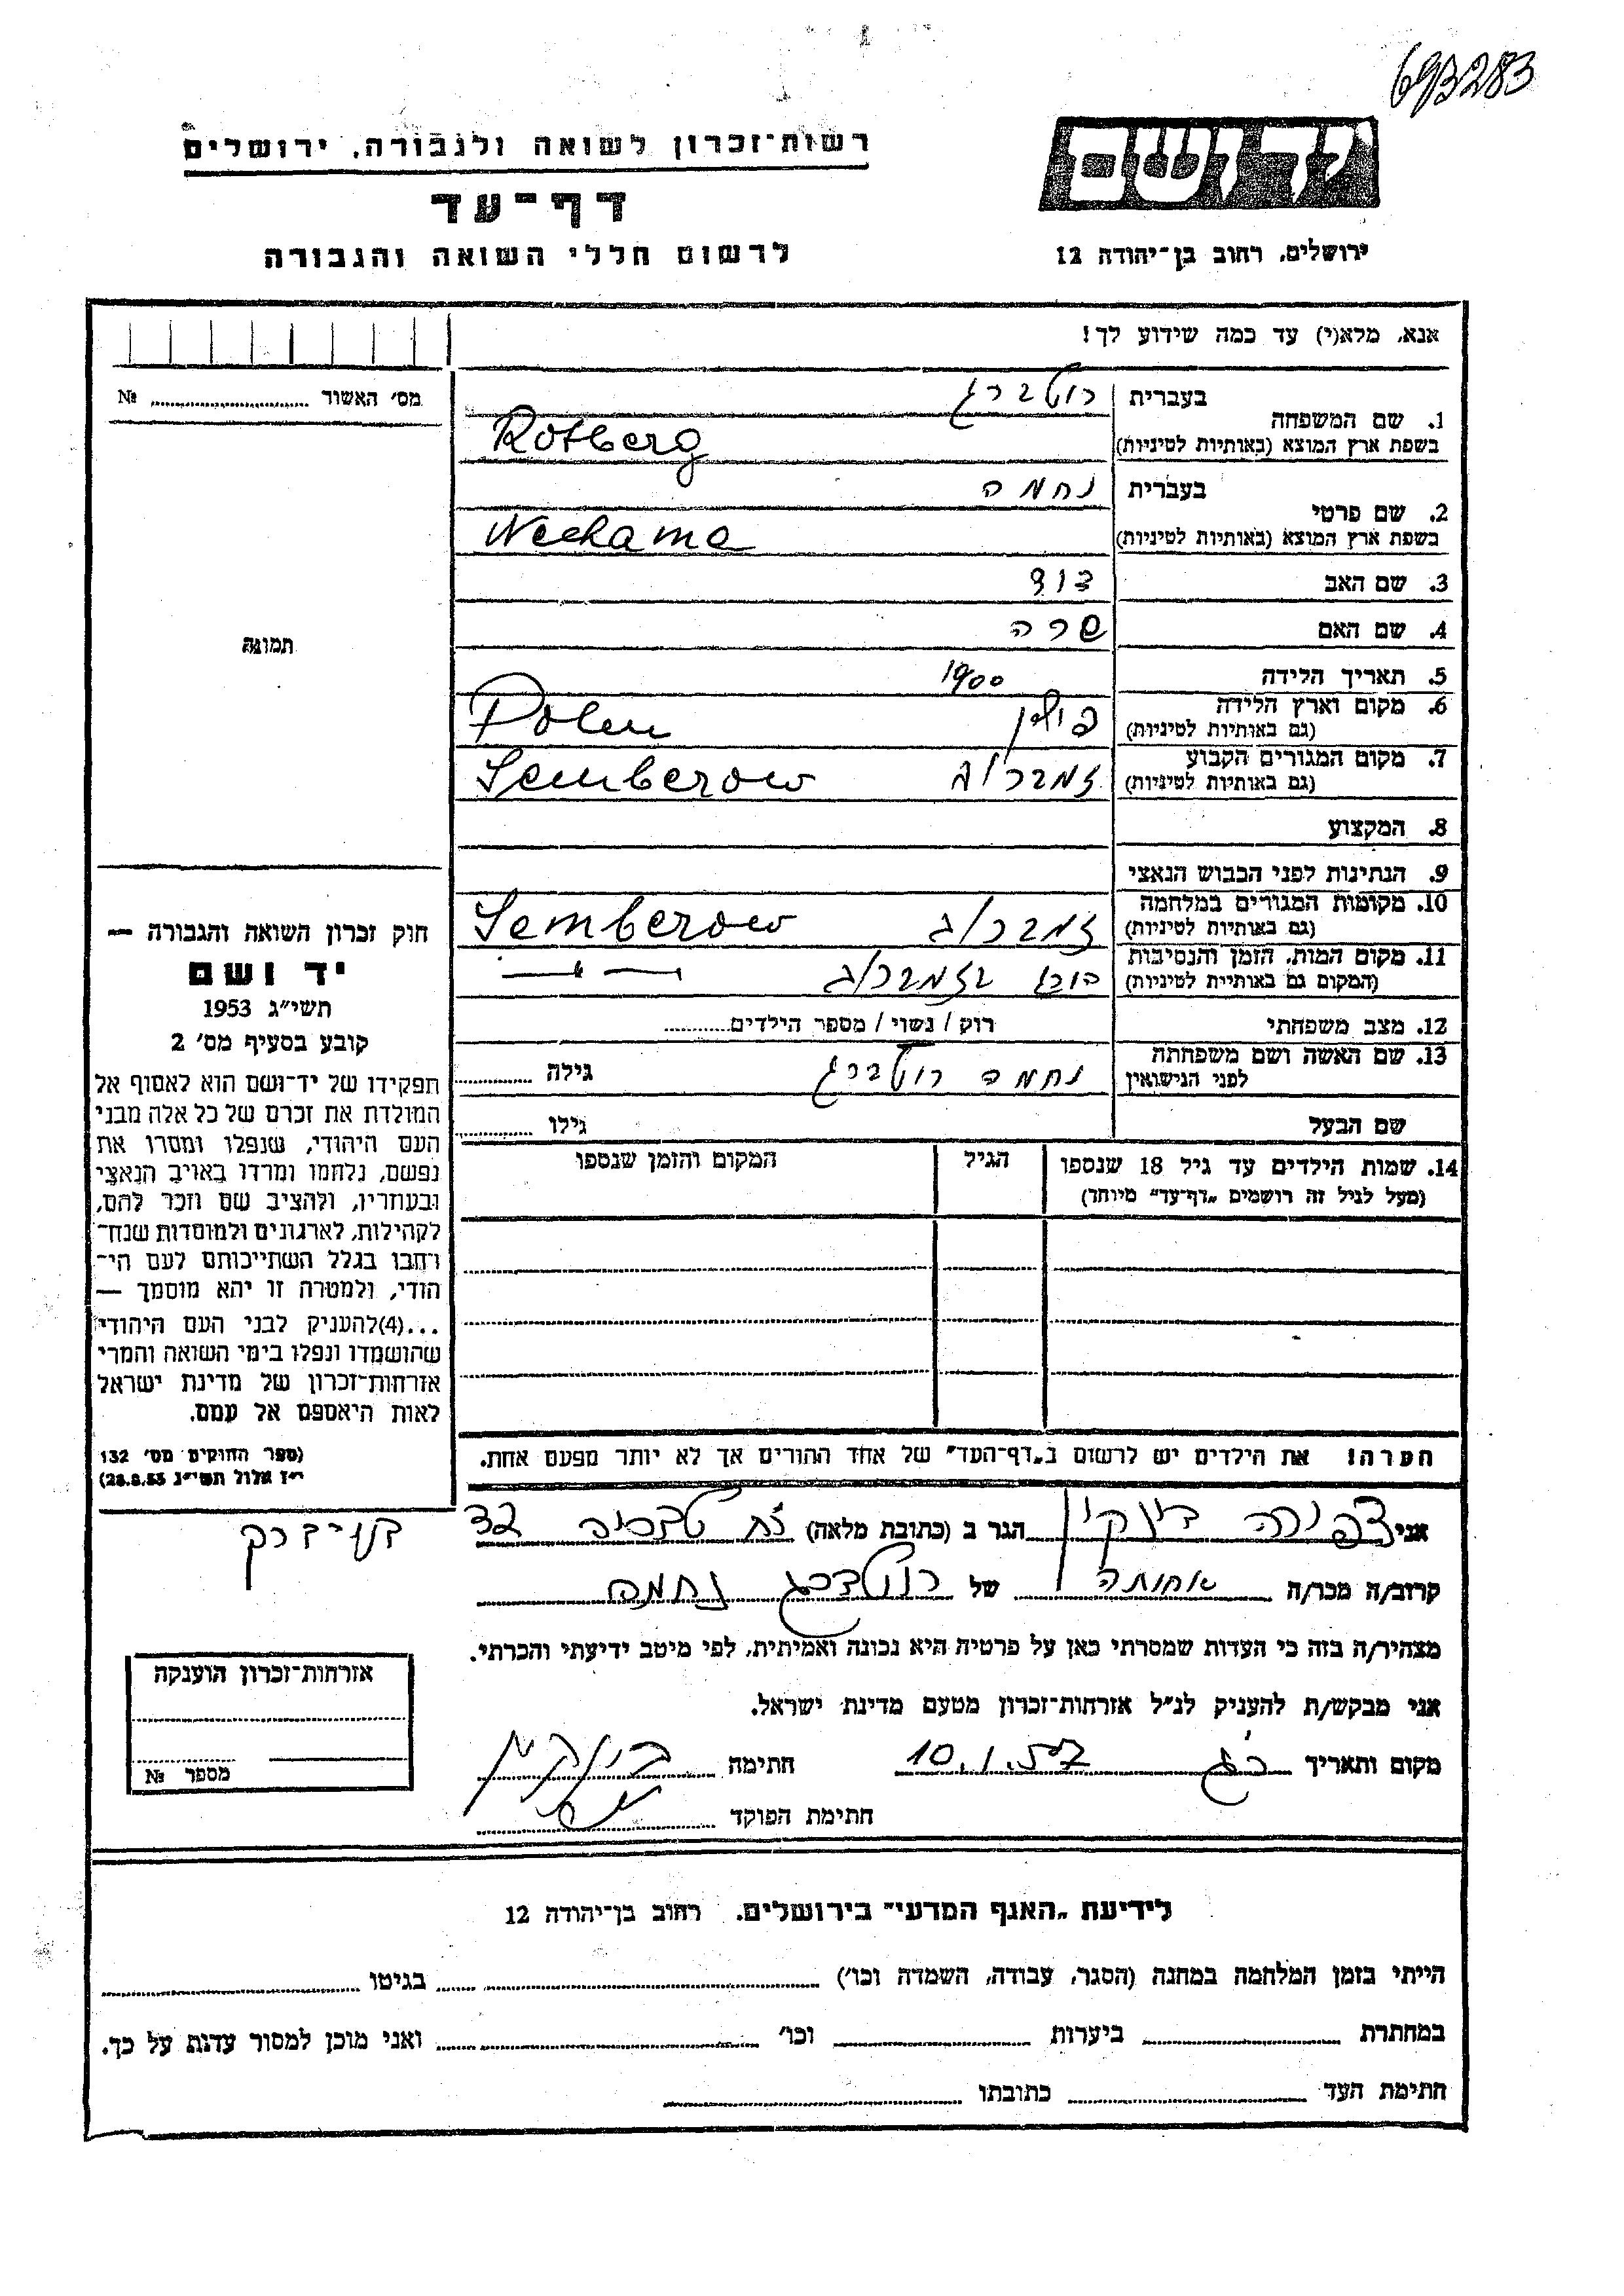 693283
יד ושם
רשות־זכרון לשואה ולגבורה, ירושלים
דף־עד
לרשום חללי השואה והגבורה
ירושלים, רחוב בן־יהודה 12
אנא, מלא(י) עד כמה שידוע לך!
מס׳ האשור № ........
תמונה
1. שם המשפחה בעברית רוטברג
בשפת ארץ המוצא (באותיות לטיניות) Rotberg
2. שם פרטי בעברית נחמה
בשפת ארץ המוצא (באותיות לטיניות) Nechama
3. שם האב דוד
4. שם האם שרה
5. תאריך הלידה 1900
6. מקום וארץ הלידה (גם באותיות לטיניות) פולין Polen
7. מקום המגורים הקבוע (גם באותיות לטיניות) זמברוב Semberow
8. המקצוע
9. הנתינות לפני הכבוש הנאצי
10. מקומות המגורים במלחמה (גם באותיות לטיניות) זמברוב Semberow
11. מקום המות, הזמן והנסיבות (המקום גם באותיות לטיניות) בזמברוב — " —
12. מצב משפחתי רוק / נשוי / מספר הילדים........
13. שם האשה ושם משפחתה לפני הנישואין נחמה רוטברג גילה ........
שם הבעל גילו ........
14. שמות הילדים עד גיל 18 שנספו הגיל המקום והזמן שנספו
(מעל לגיל זה רושמים „דף־עד״ מיוחד)
הערה! את הילדים יש לרשום ב„דף־העד״ של אחד ההורים אך לא יותר מפעם אחת.
חוק זכרון השואה והגבורה —
יד ושם
תשי״ג 1953
קובע בסעיף מס׳ 2
תפקידו של יד־ושם הוא לאסוף אל
המולדת את זכרם של כל אלה מבני
העם היהודי, שנפלו ומסרו את
נפשם, נלחמו ומרדו באויב הנאצי
ובעוזריו, ולהציב שם וזכר להם,
לקהילות, לארגונים ולמוסדות שנח־
רחבו בגלל השתייכותם לעם הי־
הודי, ולמטרה זו יהא מוסמך —
...(4)להעניק לבני העם היהודי
שהושמדו ונפלו בימי השואה והמרי
אזרחות־זכרון של מדינת ישראל
לאות היאספם אל עמם.
(ספר החוקים מס׳ 132
י״ז אלול תשי״ג 28.8.53)
אני צפורה הגר ב (כתובת מלאה) 32
קרוב/ה מכר/ה אחותה של רוטברג נחמה
מצהיר/ה בזה כי העדות שמסרתי כאן על פרטיה היא נכונה ואמיתית, לפי מיטב ידיעתי והכרתי.
אני מבקש/ת להעניק לנ״ל אזרחות־זכרון מטעם מדינת ישראל.
מקום ותאריך 10.1.57 חתימה
חתימת הפוקד
אזרחות־זכרון הוענקה
מספר №
לידיעת „האגף המדעי״ בירושלים, רחוב בן־יהודה 12
הייתי בזמן המלחמה במחנה (הסגר, עבודה, השמדה וכו׳) ........ בגיטו ........
במחתרת ........ ביערות ........ וכו׳ ........ ואני מוכן למסור עדות על כך.
חתימת העד ........ כתובתו ........